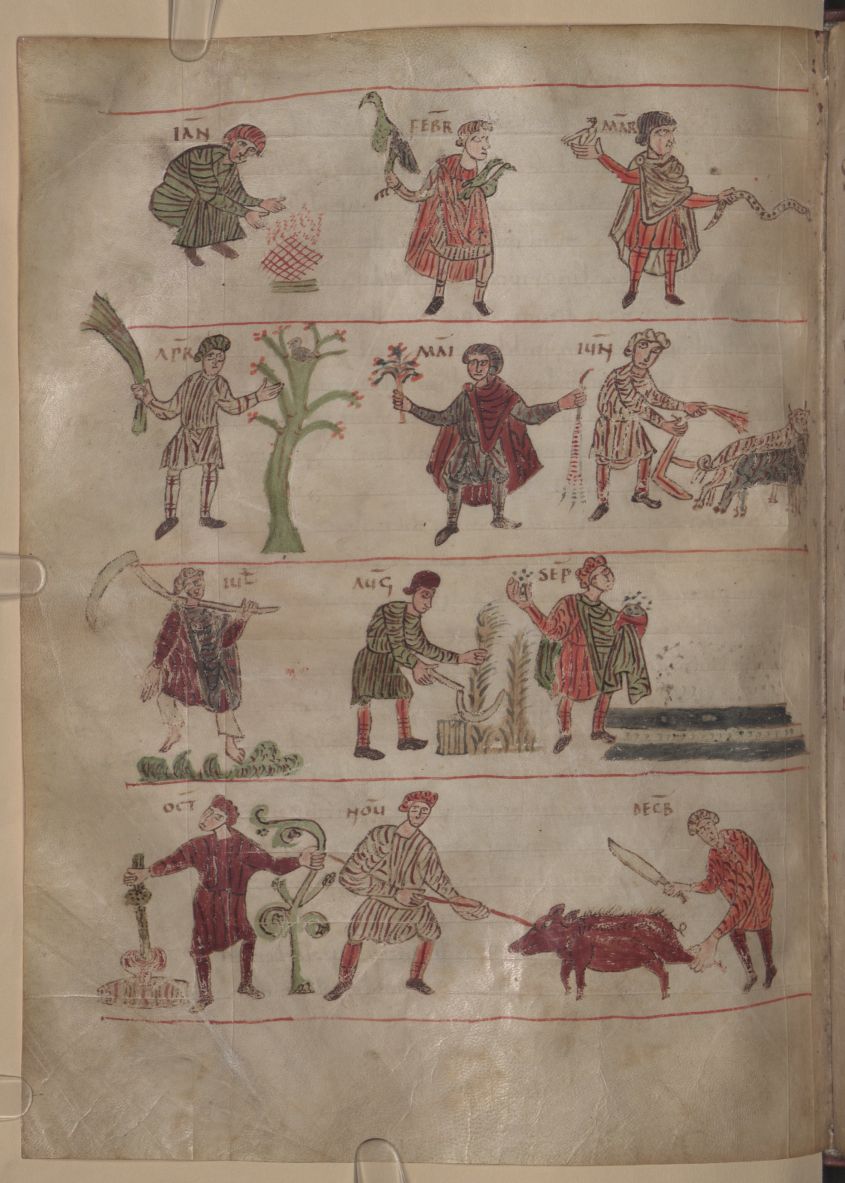 IAN̄ FEB̄R MĀR
AP̄R MĀI IUN̄
IUL̄ AUḠ SEP̄
OCT̄ NOŪ DEC̄B